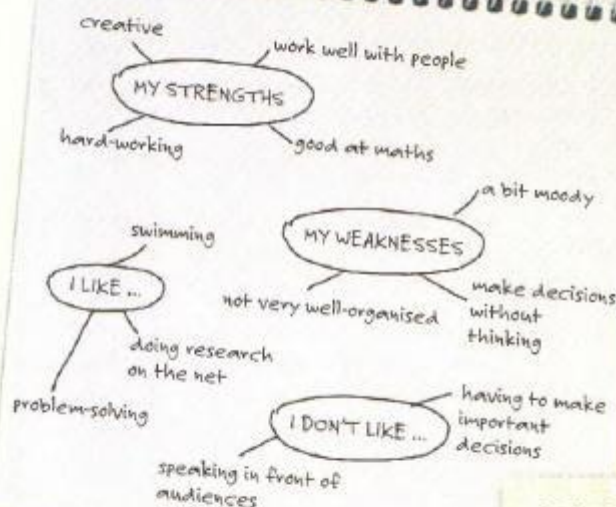 creative
work well with people
MY STRENGTHS
hard-working
good at maths
a bit moody
MY WEAKNESSES
not very well-organised
make decisions
without
thinking
swimming
I LIKE ...
doing research
on the net
problem-solving
having to make
important
decisions
I DON'T LIKE ...
speaking in front of
audiences